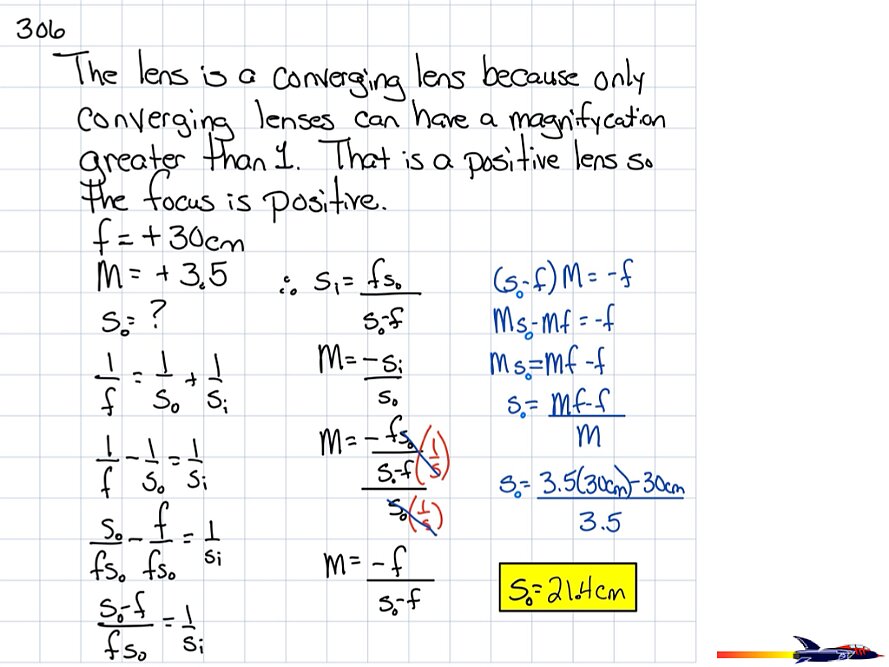 306
The lens is a converging lens because only
converging lenses can have a magnifycation
greater than 1. That is a positive lens so
the focus is positive.
f = + 30cm
M = + 3.5
s₀ = ?
1/f = 1/s₀ + 1/sᵢ
1/f - 1/s₀ = 1/sᵢ
s₀/fs₀ - f/fs₀ = 1/sᵢ
s₀-f/fs₀ = 1/sᵢ
∴ sᵢ = fs₀/s₀-f
M = -sᵢ/s₀
M = -fs₀/s₀-f (1/s) / s₀ (1/s)
M = -f/s₀-f
(s₀-f)M = -f
Ms₀-Mf = -f
Ms₀=Mf -f
s₀ = Mf-f/M
s₀ = 3.5(30cm)-30cm/3.5
s₀ = 21.4cm